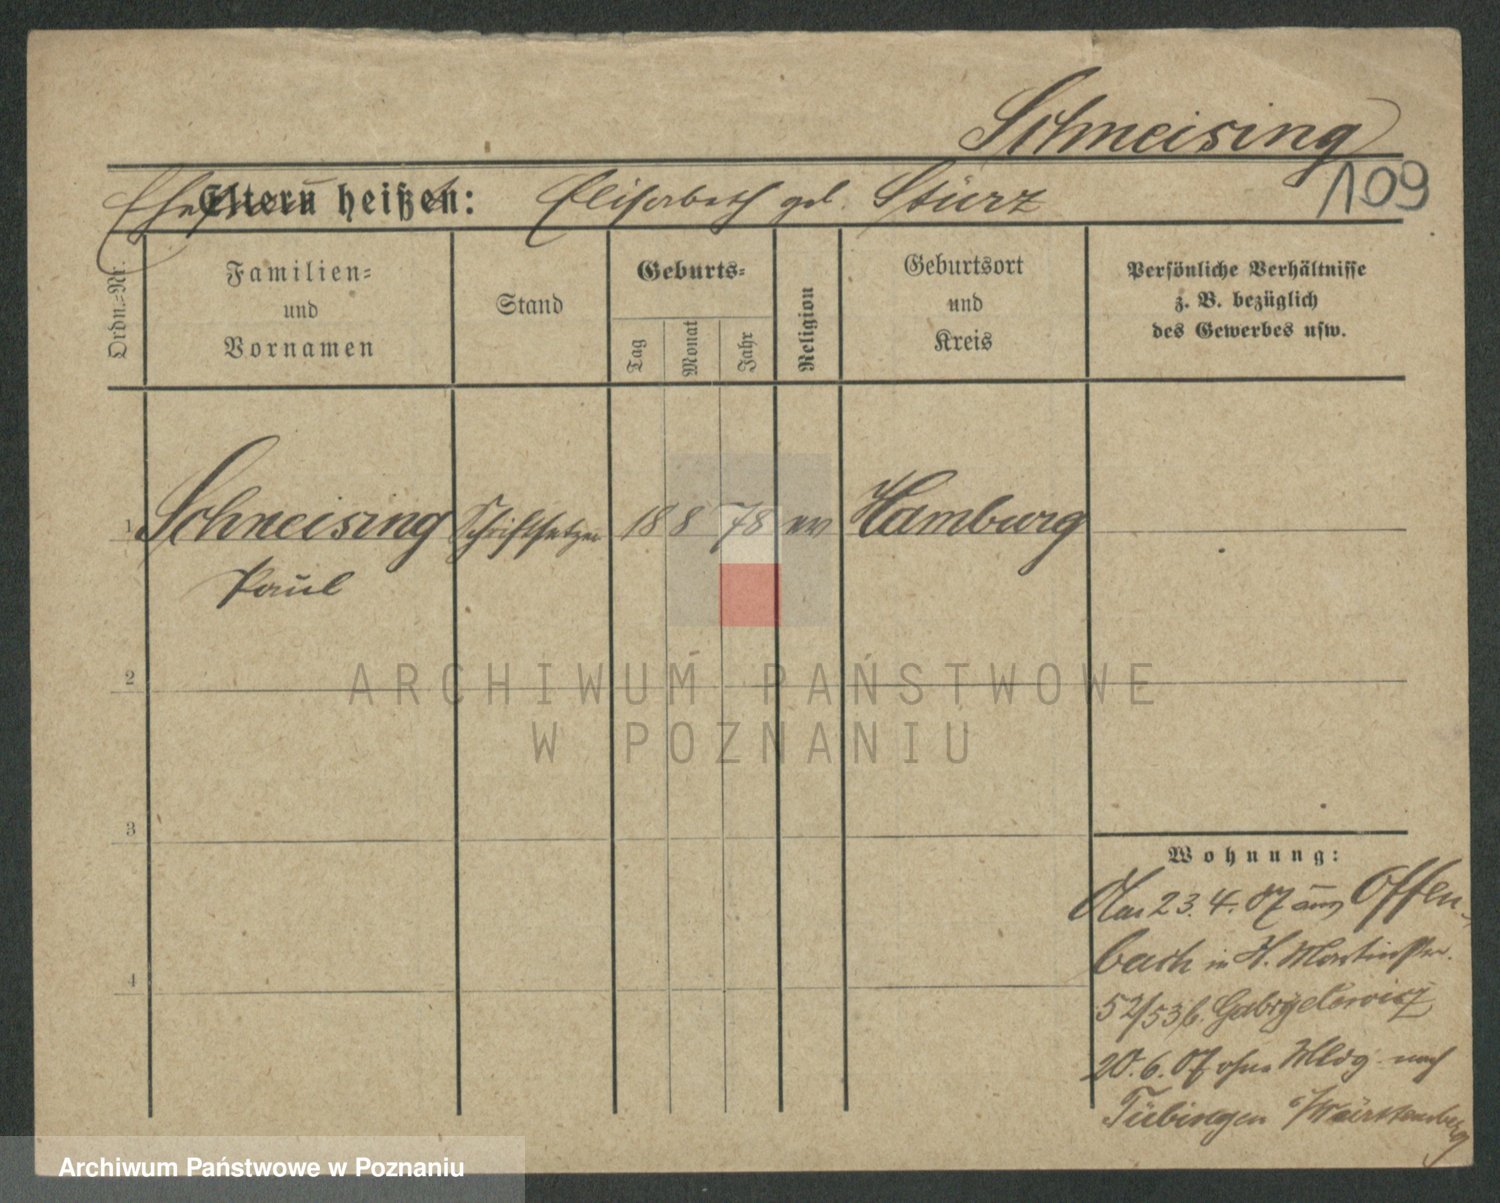 Schneising
109
Ehefrau Eltern heißen: Elisabeth geb. Stürz
Ordn.-Nr.
Familien-
und
Vornamen
Stand
Geburts-
Tag
Monat
Jahr
Religion
Geburtsort
und
Kreis
Persönliche Verhältnisse
z. B. bezüglich
des Gewerbes usw.
1 Schneising Schriftsetzer 18 8 78 ev Hamburg
Paul
2
3
4
Wohnung:
Am 23.4.07 aus Offen-
bach in H. Martinstr.
52/53 b. Gabryelewicz
20.6.07 ohne Mldg nach
Tübingen i/Württemberg
ARCHIWUM PAŃSTWOWE
W POZNANIU
Archiwum Państwowe w Poznaniu